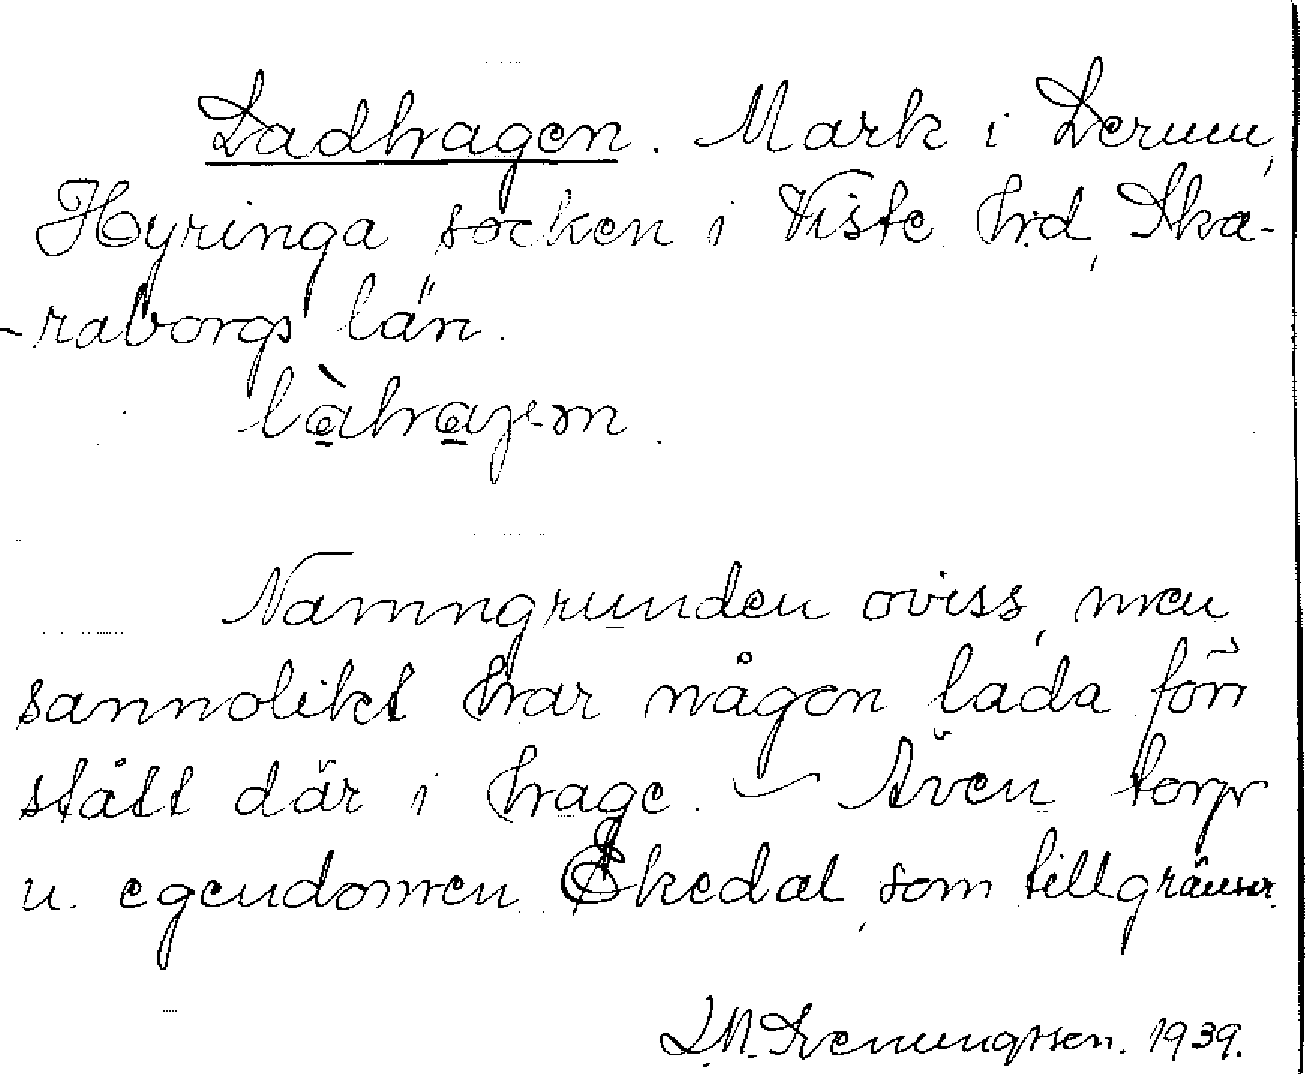 Ladhagen. Mark i Lerum,
Hyringa socken i Viste hrd, Ska-
-raborgs län.
Namngrunden oviss, men
sannolikt har någon lada förr
stått där i hage. – Även torp
u. egendomen Ekedal, som tillgränsar.
1939.